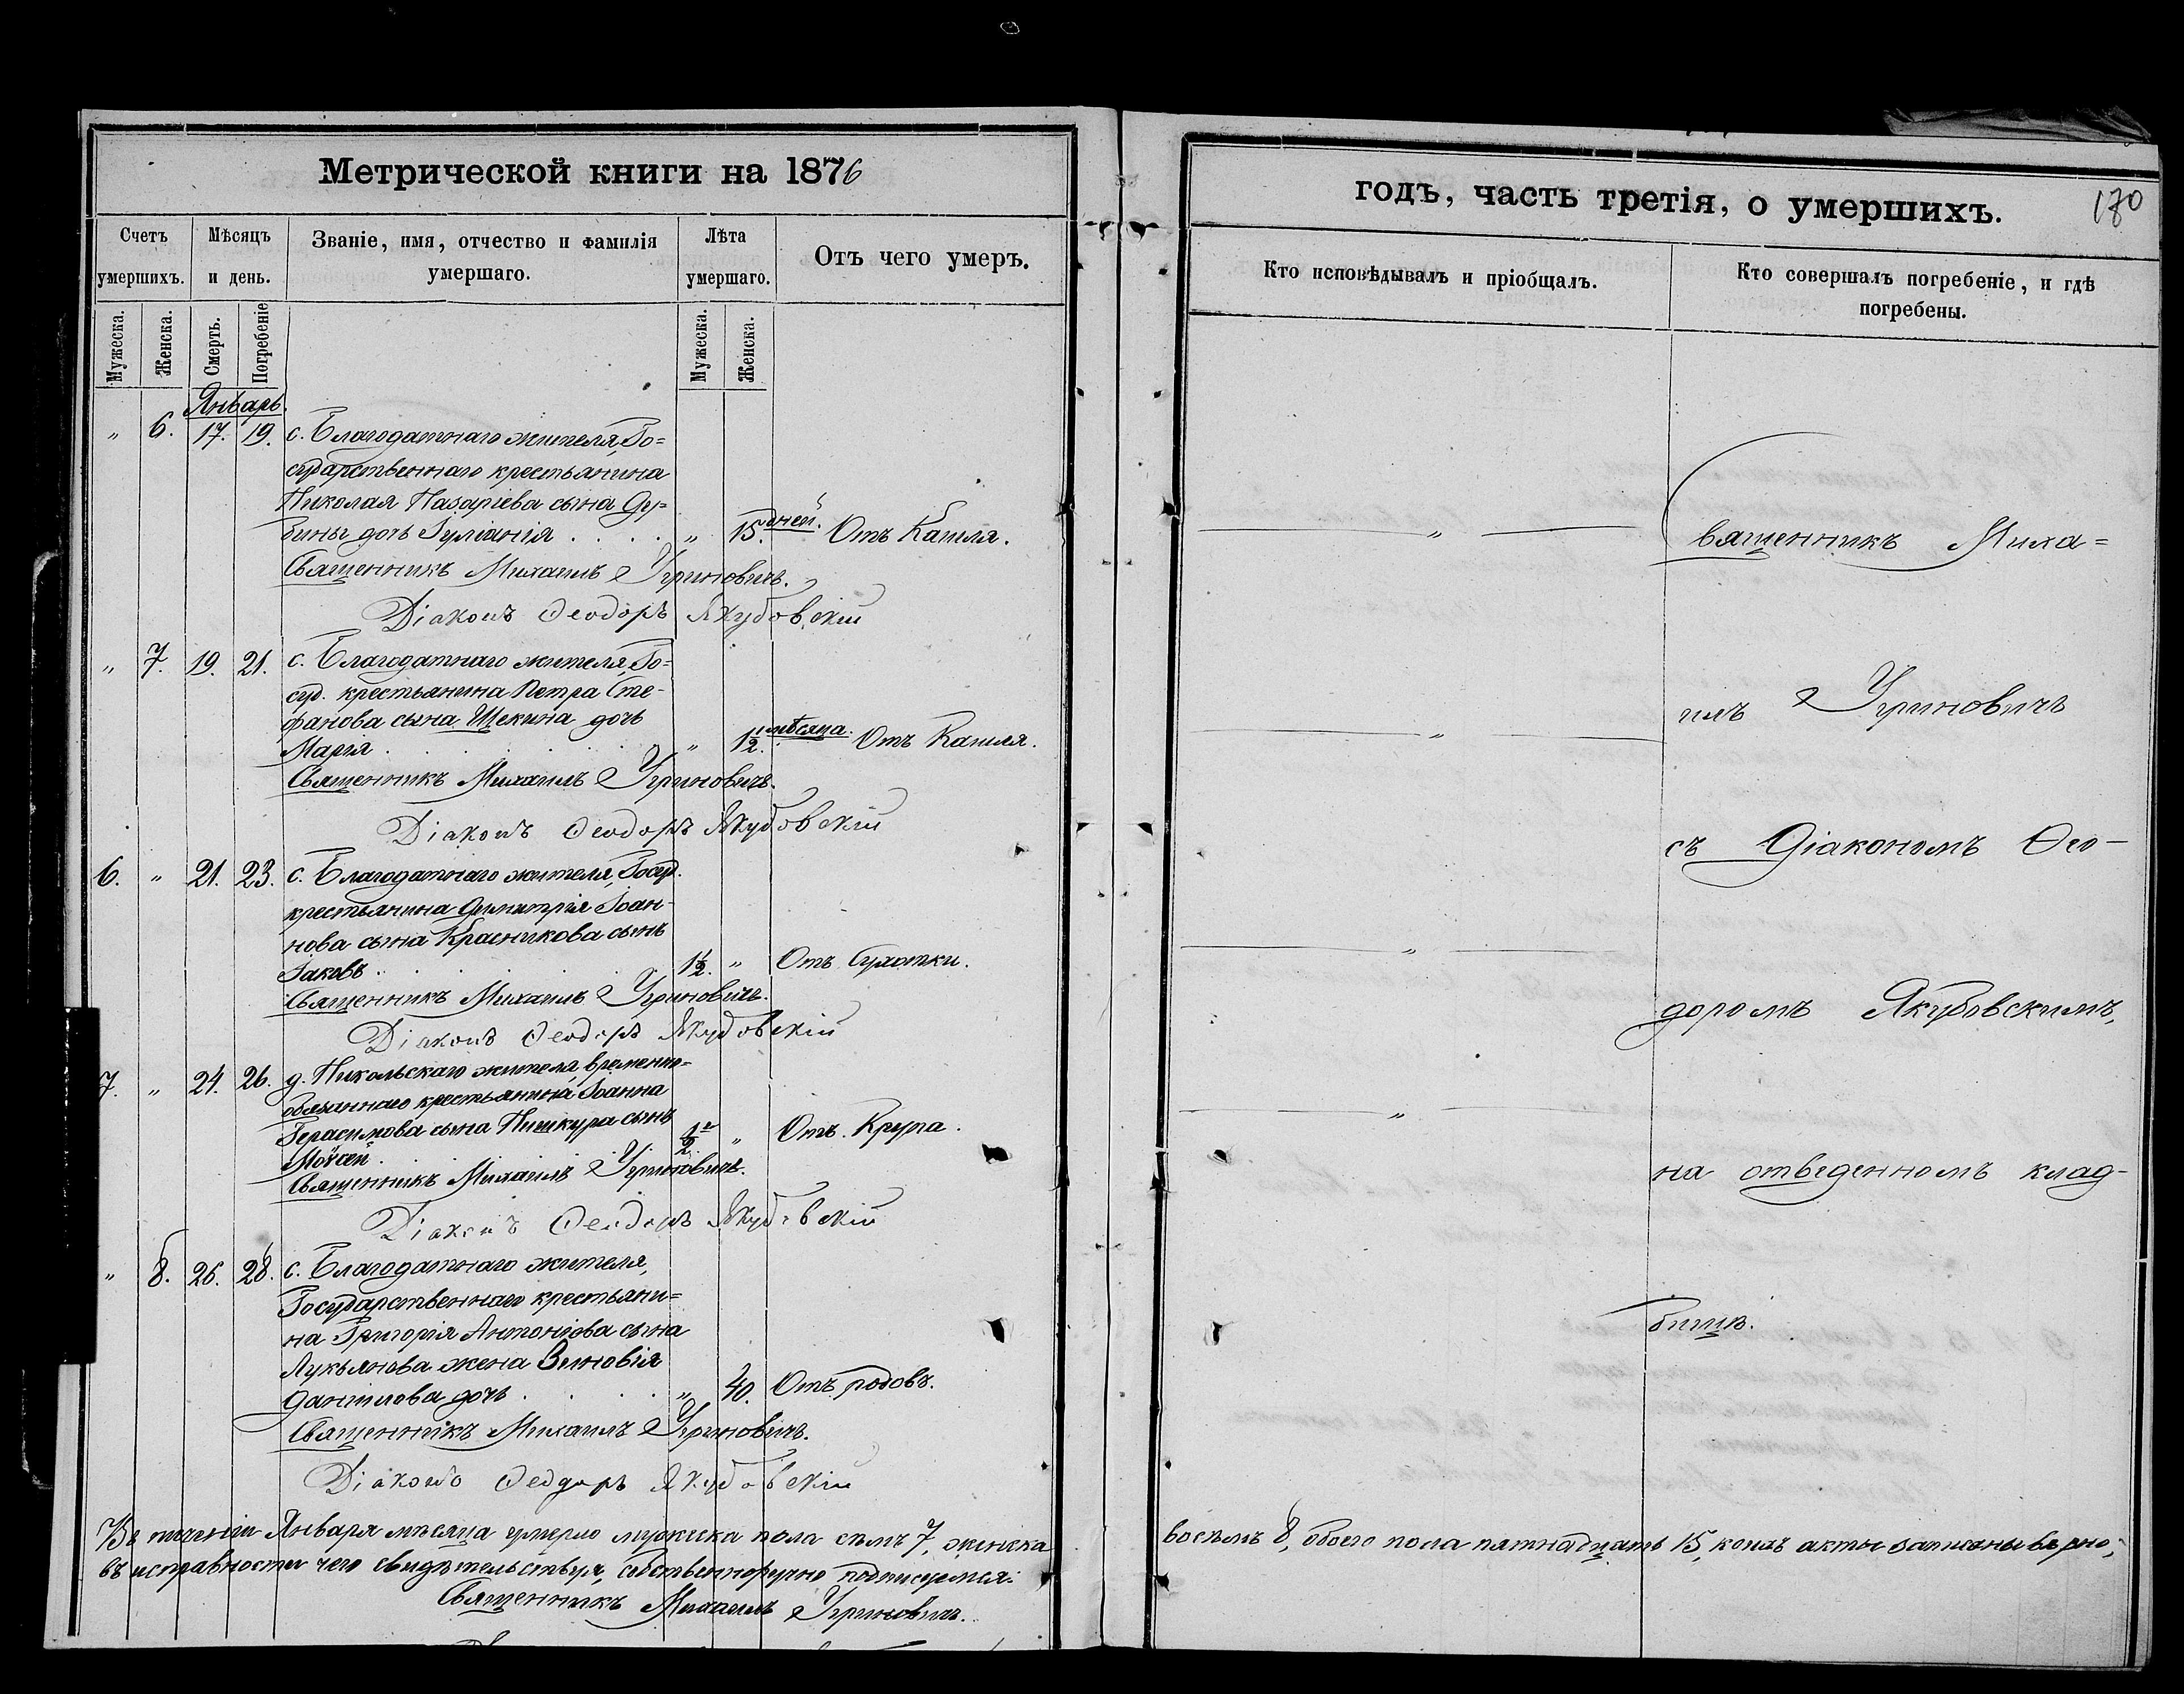 Метрической книги на 1876
годъ, часть третія, о умершихъ.
180
Счетъ умершихъ.
Мѣсяцъ и день.
Званіе, имя, отчество и фамилія умершаго.
Лѣта умершаго.
Отъ чего умеръ.
Кто исповѣдывалъ и пріобщалъ.
Кто совершалъ погребеніе, и гдѣ погребены.
Мужеска. Женска. Смерть. Погребеніе Мужеска. Женска.
Январь.
" 6. 17. 19. с. Благодатнаго жителя, Го=
сударственнаго крестьянина
Николая Назаріева сына Ду=
бины дочь Іуліанія . . . . " 15. дней. Отъ Кашля. "
Священникъ Михаилъ Угриновичъ.
Діаконъ Ѳеодоръ Якубовскій
" 7. 19. 21. с. Благодатнаго жителя, Го=
суд. крестьянина Петра Сте-
фанова сына Щекина дочь
Марія . . . . " 1½. мѣсяца. Отъ Кашля. "
Священникъ Михаилъ Угриновичъ.
Діаконъ Ѳеодоръ Якубовскій
6. " 21. 23. с. Благодатнаго жителя, Госуд.
крестьянина Димитрія Іоан-
нова сына Красникова сынъ
Іаковъ . . . 1½. " Отъ Сухотки. "
Священникъ Михаилъ Угриновичъ.
Діаконъ Ѳеодоръ Якубовскій
7. " 24. 26. д. Никольскаго жителя, временно-
обязаннаго крестьянина Іоанна
Герасимова сына Пишкура сынъ
Мойсей . ½. " Отъ Крупа. "
Священникъ Михаилъ Угриновичъ.
Діаконъ Ѳеодоръ Якубовскій
" 8. 26. 28. с. Благодатнаго жителя,
Государственнаго крестьяни=
на Григорія Антоніова сына
Лукьянова жена Зиновія
Данилова дочь . . . . " 40. Отъ родовъ.
Священникъ Михаилъ Угриновичъ.
Діаконъ Ѳеодоръ Якубовскій
Священникъ Миха=
илъ Угриновичъ
съ Діакономъ Ѳео-
доромъ Якубовскимъ,
на отведенномъ клад-
бищѣ.
Въ теченіи Января мѣсяца умерло мужеска пола семь 7, женска восемь 8, обоего пола пятнадцать 15, коихъ акты записаны вѣрно,
въ исправности чего свидѣтельствуя, собственноручно подписуемся:
Священникъ Михаилъ Угриновичъ.